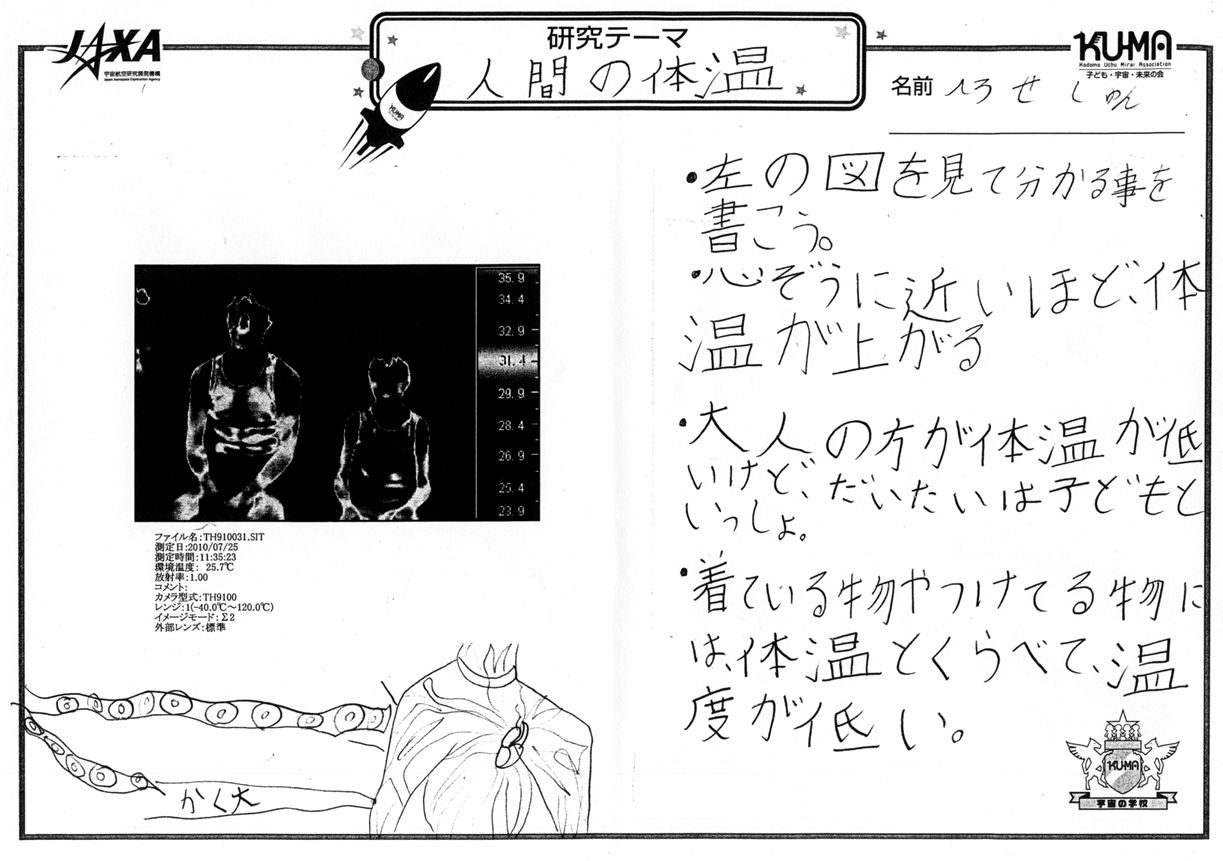 JAXA
宇宙航空研究開発機構
Japan Aerospace Exploration Agency
研究テーマ
人間の体温
KUMA
KU-MA
Kodomo Uchu Mirai Association
子ども・宇宙・未来の会
名前 ひろせ しゅん
・左の図を見て分かる事を
書こう。
・心ぞうに近いほど、体
温が上がる
・大人の方が体温が低
いけど、だいたいは子どもと
いっしょ。
・着ている物やつけてる物に
は、体温とくらべて、温
度が低い。
35.9
34.4
32.9
31.4
29.9
28.4
26.9
25.4
23.9
ファイル名:TH910031.SIT
測定日:2010/07/25
測定時間:11:35:23
環境温度: 25.7℃
放射率:1.00
コメント:
カメラ型式:TH9100
レンジ:1(-40.0℃～120.0℃)
イメージモード:Σ2
外部レンズ:標準
かく大
KU-MA
宇宙の学校